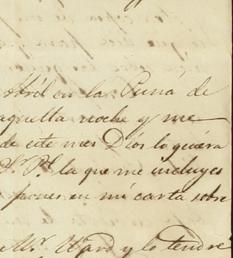 Abril en la Puna de
aquella noche y me
de este mes Dios lo quiera
Sr. Pl. la que me incluyes
poner en mi carta sobre
Mr. Ward y lo tendré